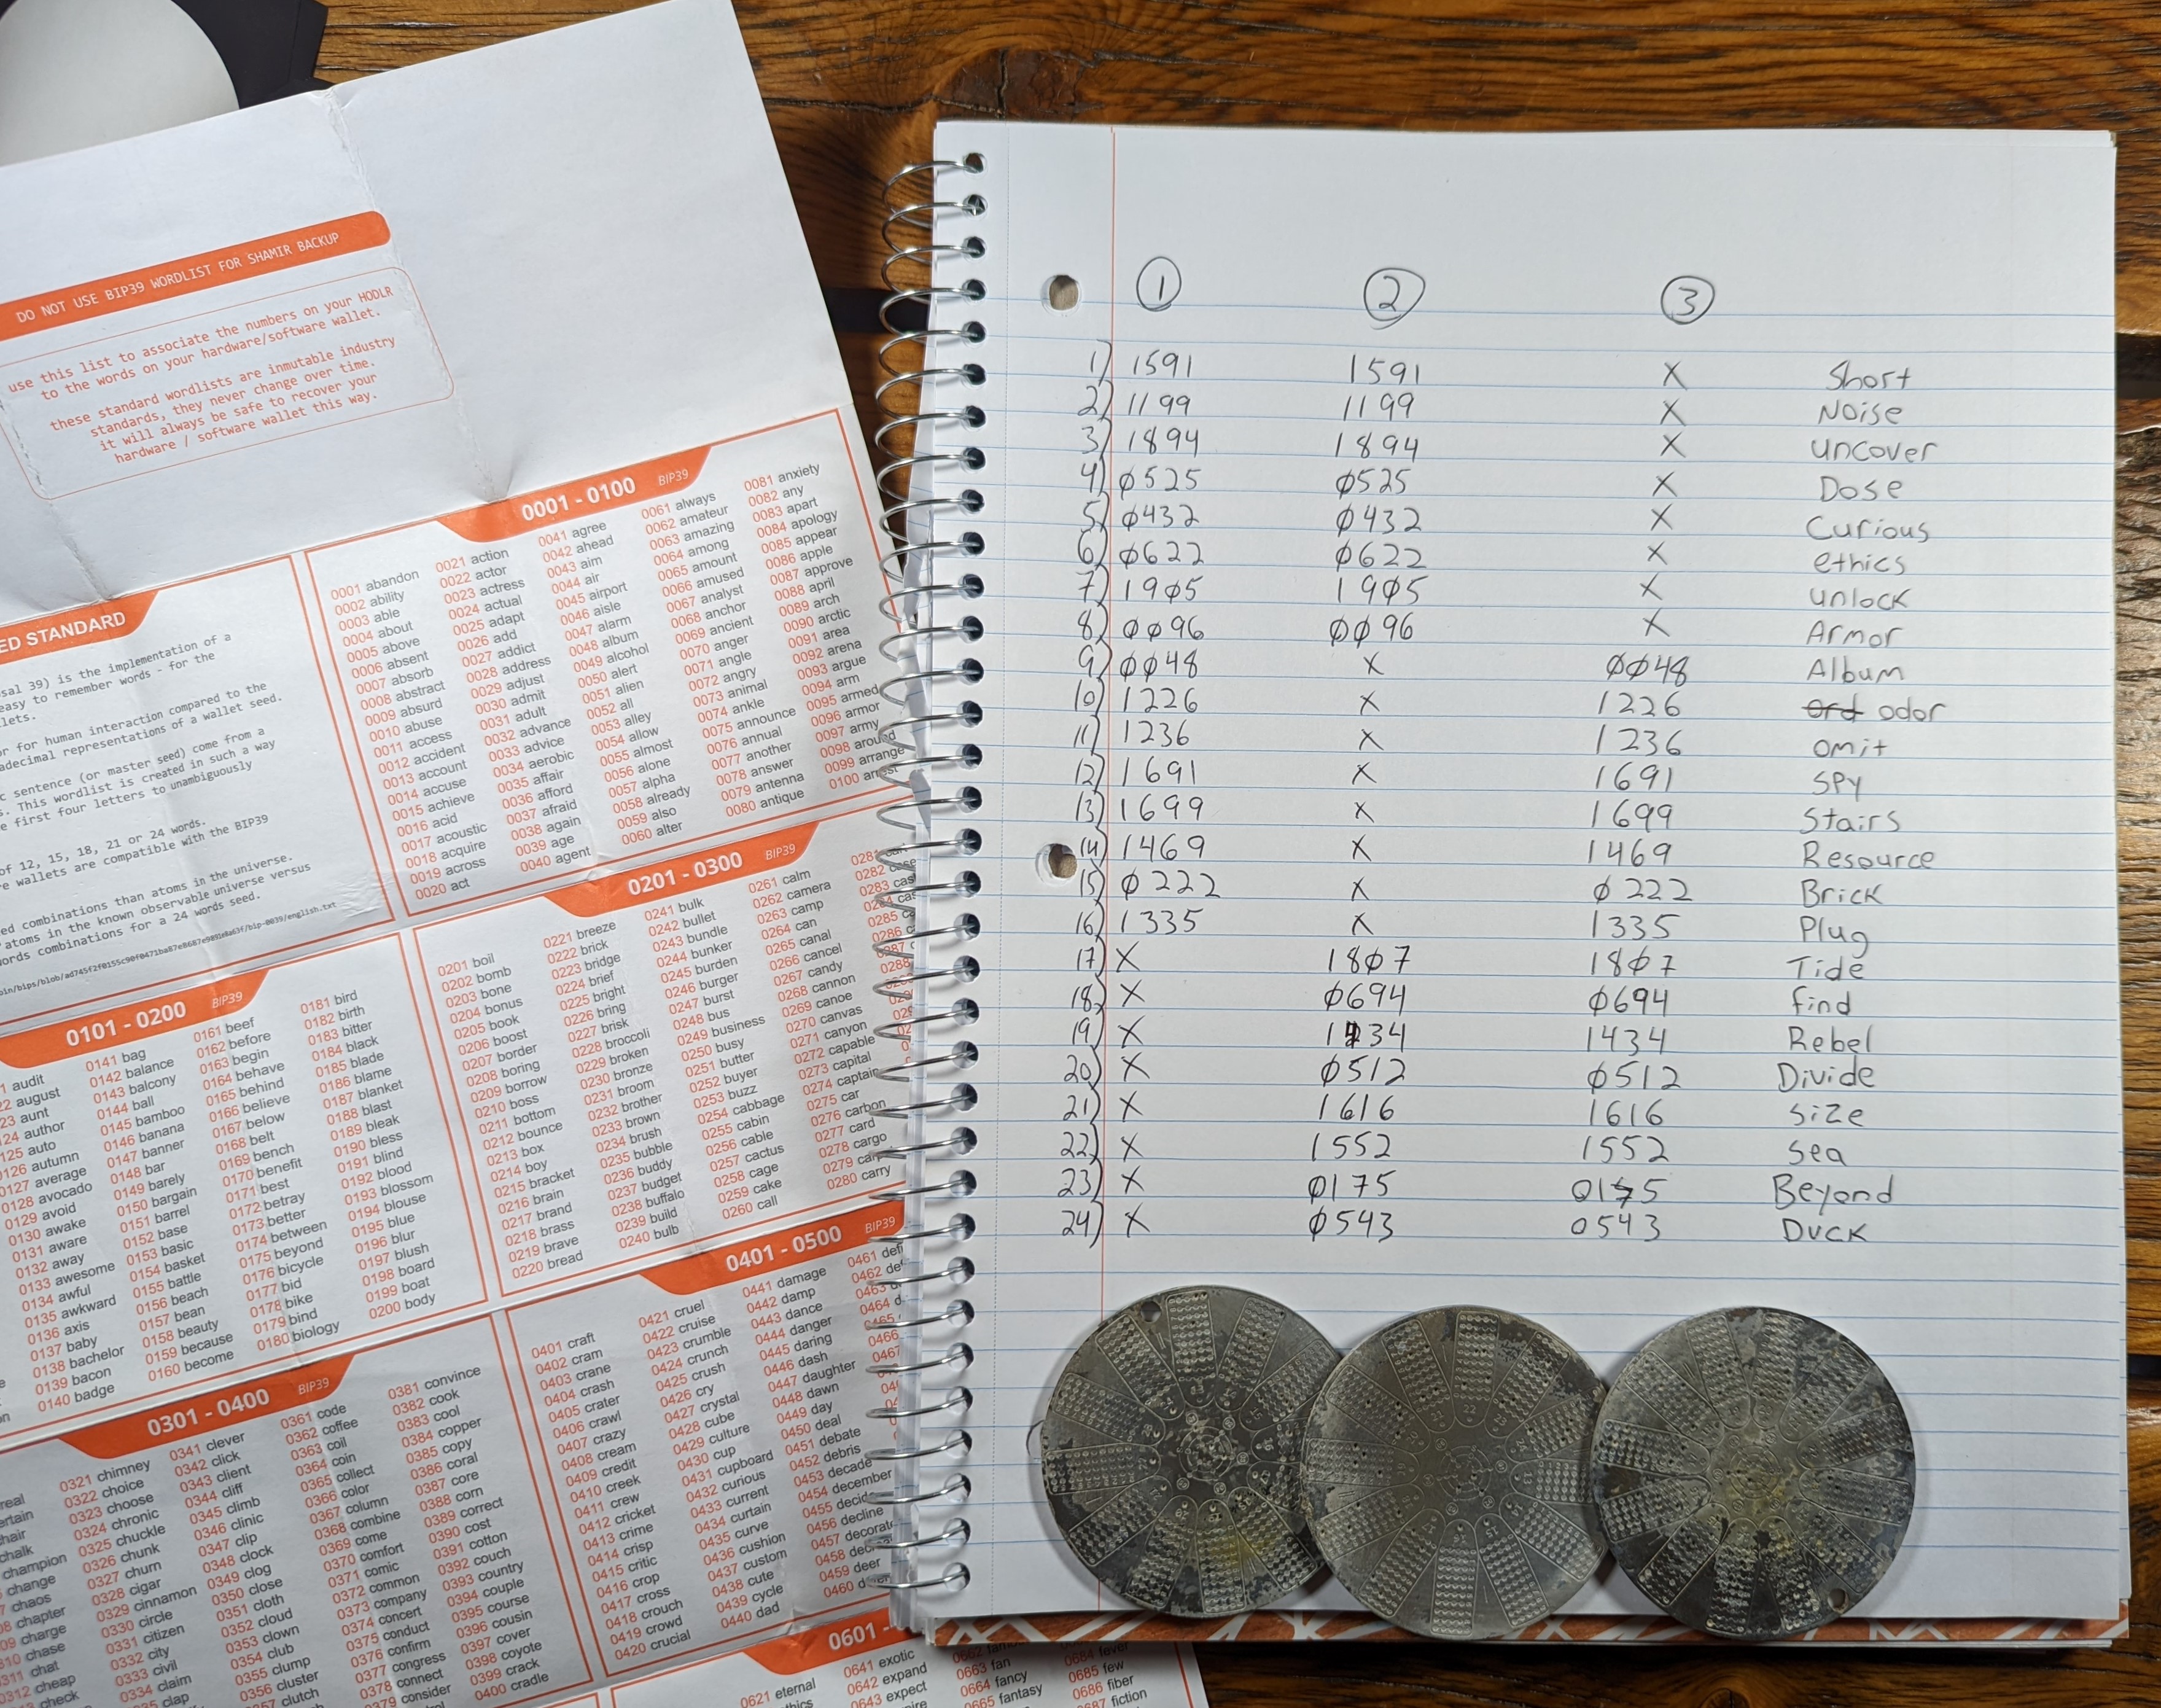 DO NOT USE BIP39 WORDLIST FOR SHAMIR BACKUP
use this list to associate the numbers on your HODLR
to the words on your hardware/software wallet.
these standard wordlists are inmutable industry
standards, they never change over time.
it will always be safe to recover your
hardware / software wallet this way.
ED STANDARD
sal 39) is the implementation of a
easy to remember words - for the
llets.
or for human interaction compared to the
adecimal representations of a wallet seed.
c sentence (or master seed) come from a
. This wordlist is created in such a way
e first four letters to unambiguously
of 12, 15, 18, 21 or 24 words.
e wallets are compatible with the BIP39
ed combinations than atoms in the universe.
atoms in the known observable universe versus
ords combinations for a 24 words seed.
0001 - 0100 BIP39
0001 abandon
0002 ability
0003 able
0004 about
0005 above
0006 absent
0007 absorb
0008 abstract
0009 absurd
0010 abuse
0011 access
0012 accident
0013 account
0014 accuse
0015 achieve
0016 acid
0017 acoustic
0018 acquire
0019 across
0020 act
0021 action
0022 actor
0023 actress
0024 actual
0025 adapt
0026 add
0027 addict
0028 address
0029 adjust
0030 admit
0031 adult
0032 advance
0033 advice
0034 aerobic
0035 affair
0036 afford
0037 afraid
0038 again
0039 age
0040 agent
0041 agree
0042 ahead
0043 aim
0044 air
0045 airport
0046 aisle
0047 alarm
0048 album
0049 alcohol
0050 alert
0051 alien
0052 all
0053 alley
0054 allow
0055 almost
0056 alone
0057 alpha
0058 already
0059 also
0060 alter
0061 always
0062 amateur
0063 amazing
0064 among
0065 amount
0066 amused
0067 analyst
0068 anchor
0069 ancient
0070 anger
0071 angle
0072 angry
0073 animal
0074 ankle
0075 announce
0076 annual
0077 another
0078 answer
0079 antenna
0080 antique
0081 anxiety
0082 any
0083 apart
0084 apology
0085 appear
0086 apple
0087 approve
0088 april
0089 arch
0090 arctic
0091 area
0092 arena
0093 argue
0094 arm
0095 armed
0096 armor
0097 army
0098 around
0099 arrange
0100 arrest
0101 - 0200 BIP39
1 audit
22 august
23 aunt
24 author
125 auto
0126 autumn
0127 average
0128 avocado
0129 avoid
0130 awake
0131 aware
0132 away
0133 awesome
0134 awful
0135 awkward
0136 axis
0137 baby
0138 bachelor
0139 bacon
0140 badge
0141 bag
0142 balance
0143 balcony
0144 ball
0145 bamboo
0146 banana
0147 banner
0148 bar
0149 barely
0150 bargain
0151 barrel
0152 base
0153 basic
0154 basket
0155 battle
0156 beach
0157 bean
0158 beauty
0159 because
0160 become
0161 beef
0162 before
0163 begin
0164 behave
0165 behind
0166 believe
0167 below
0168 belt
0169 bench
0170 benefit
0171 best
0172 betray
0173 better
0174 between
0175 beyond
0176 bicycle
0177 bid
0178 bike
0179 bind
0180 biology
0181 bird
0182 birth
0183 bitter
0184 black
0185 blade
0186 blame
0187 blanket
0188 blast
0189 bleak
0190 bless
0191 blind
0192 blood
0193 blossom
0194 blouse
0195 blue
0196 blur
0197 blush
0198 board
0199 boat
0200 body
0201 - 0300 BIP39
0201 boil
0202 bomb
0203 bone
0204 bonus
0205 book
0206 boost
0207 border
0208 boring
0209 borrow
0210 boss
0211 bottom
0212 bounce
0213 box
0214 boy
0215 bracket
0216 brain
0217 brand
0218 brass
0219 brave
0220 bread
0221 breeze
0222 brick
0223 bridge
0224 brief
0225 bright
0226 bring
0227 brisk
0228 broccoli
0229 broken
0230 bronze
0231 broom
0232 brother
0233 brown
0234 brush
0235 bubble
0236 buddy
0237 budget
0238 buffalo
0239 build
0240 bulb
0241 bulk
0242 bullet
0243 bundle
0244 bunker
0245 burden
0246 burger
0247 burst
0248 bus
0249 business
0250 busy
0251 butter
0252 buyer
0253 buzz
0254 cabbage
0255 cabin
0256 cable
0257 cactus
0258 cage
0259 cake
0260 call
0261 calm
0262 camera
0263 camp
0264 can
0265 canal
0266 cancel
0267 candy
0268 cannon
0269 canoe
0270 canvas
0271 canyon
0272 capable
0273 capital
0274 captain
0275 car
0276 carbon
0277 card
0278 cargo
0280 carry
0301 - 0400 BIP39
0321 chimney
0322 choice
0323 choose
0324 chronic
0325 chuckle
0326 chunk
0327 churn
0328 cigar
0329 cinnamon
0330 circle
0331 citizen
0332 city
0333 civil
0334 claim
0341 clever
0342 click
0343 client
0344 cliff
0345 climb
0346 clinic
0347 clip
0348 clock
0349 clog
0350 close
0351 cloth
0352 cloud
0353 clown
0354 club
0355 clump
0356 cluster
0361 code
0362 coffee
0363 coil
0364 coin
0365 collect
0366 color
0367 column
0368 combine
0369 come
0370 comfort
0371 comic
0372 common
0373 company
0374 concert
0375 conduct
0376 confirm
0377 congress
0378 connect
0381 convince
0382 cook
0383 cool
0384 copper
0385 copy
0386 coral
0387 core
0388 corn
0389 correct
0390 cost
0391 cotton
0392 couch
0393 country
0394 couple
0395 course
0396 cousin
0397 cover
0398 coyote
0399 crack
0400 cradle
0401 - 0500 BIP39
0401 craft
0402 cram
0403 crane
0404 crash
0405 crater
0406 crawl
0407 crazy
0408 cream
0409 credit
0410 creek
0411 crew
0412 cricket
0413 crime
0414 crisp
0415 critic
0416 crop
0417 cross
0418 crouch
0419 crowd
0420 crucial
0421 cruel
0422 cruise
0423 crumble
0424 crunch
0425 crush
0426 cry
0427 crystal
0428 cube
0429 culture
0430 cup
0431 cupboard
0432 curious
0433 current
0434 curtain
0435 curve
0436 cushion
0437 custom
0438 cute
0439 cycle
0440 dad
0441 damage
0442 damp
0443 dance
0444 danger
0445 daring
0446 dash
0447 daughter
0448 dawn
0449 day
0450 deal
0451 debate
0452 debris
0453 decade
0454 december
0456 decline
0459 deer
0601 -
0621 eternal
0641 exotic
0642 expand
0643 expect
0663 fan
0664 fancy
0665 fantasy
0685 few
0686 fiber
0687 fiction
1 2 3
1) 1591 1591 X Short
2) 1199 1199 X Noise
3) 1894 1894 X uncover
4) 0525 0525 X Dose
5) 0432 0432 X Curious
6) 0622 0622 X ethics
7) 1905 1905 X unlock
8) 0096 0096 X Armor
9) 0048 X 0048 Album
10) 1226 X 1226 ord odor
11) 1236 X 1236 omit
12) 1691 X 1691 SPy
13) 1699 X 1699 Stairs
14) 1469 X 1469 Resource
15) 0222 X 0222 Brick
16) 1335 X 1335 Plug
17) X 1807 1807 Tide
18) X 0694 0694 find
19) X 1434 1434 Rebel
20) X 0512 0512 Divide
21) X 1616 1616 Size
22) X 1552 1552 Sea
23) X 0175 0175 Beyond
24) X 0543 0543 Duck